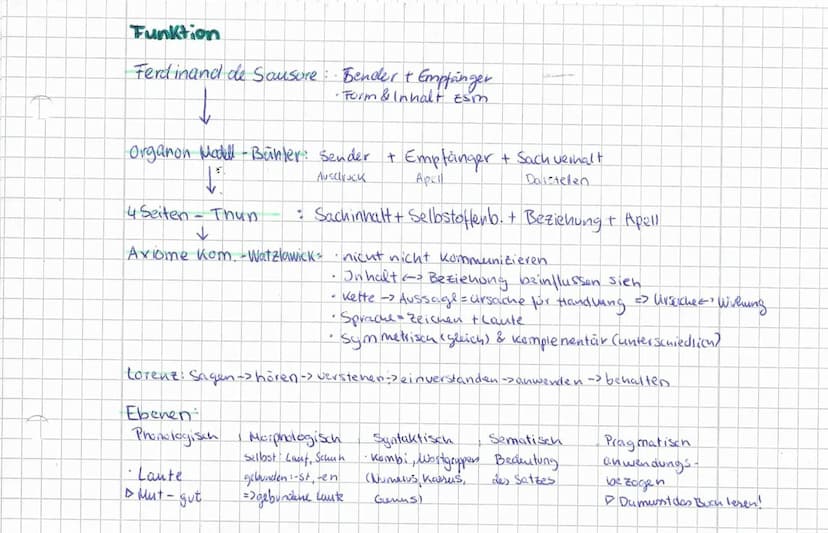 Funktion
Ferdinand de Sausore: · Sender + Empfänger
· Form & Inhalt zsm
Organon Modell - Bühler: Sender + Empfänger + Sachverhalt
Ausdruck Apell Darstelen
4 Seiten - Thun : Sachinhalt + Selbstoffenb. + Beziehung + Apell
Axiome Kom. - Watzlawick = · nicht nicht kommunizieren
· Inhalt <-> Beziehung beinflussen sich
· Kette -> Aussage = Ursache für Handlung => Ursache <-> Wirkung
· Sprache = Zeichen + Laute
· Symmetrisch (gleich) & komplementär (unterschiedlich)
Lorenz: Sagen -> hören -> verstehen -> einverstanden -> anwenden -> behalten
Ebenen:
Phonologisch , Morphologisch , Syntaktisch , Sematisch , Pragmatisch
selbst: Lauf, Schuh · Kombi, Wortgruppen Bedeutung anwendungs-
· Laute gebunden: -st, -en (Numerus, Kasus, des Satzes bezogen
▷ Mut - gut => gebundene Laute Genus) ▷ Du musst das Buch lesen!